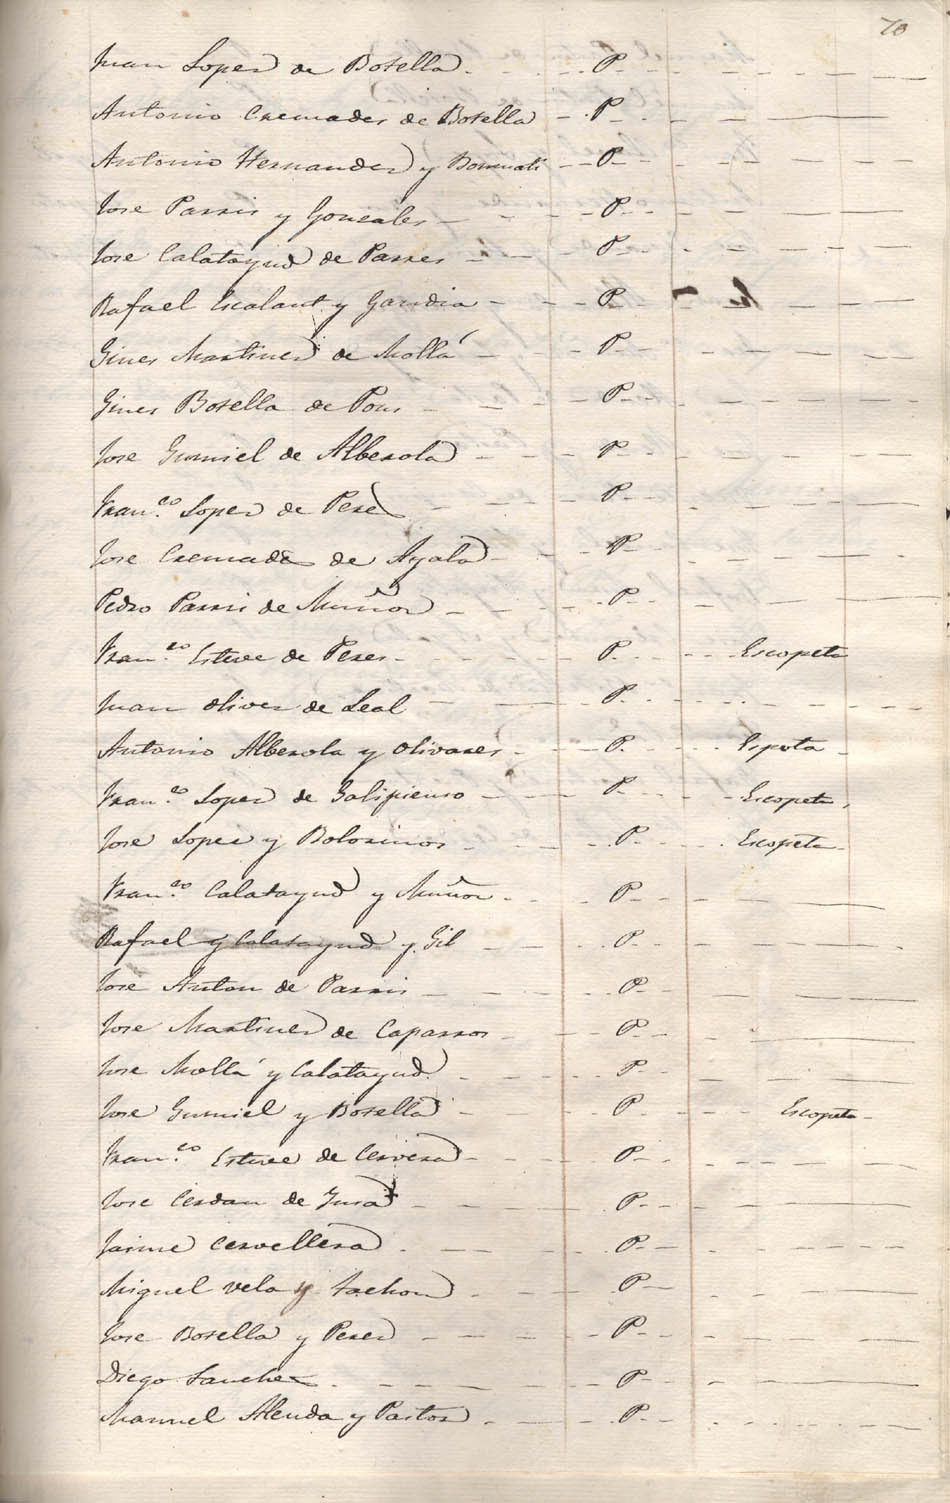 70
Juan Lopez de Botella P.
Antonio Cremades de Botella P.
Antonio Hernandez y Bonmati P.
Jose Parris y Goncales P.
Jose Calatayud de Parres P.
Rafael Escalant y Gandia P.
Gines Martinez de Mollá P.
Gines Botella de Pons P.
Jose Gumiel de Alberola P.
Fran.co Lopez de Perez P.
Jose Cremades de Ayala P.
Pedro Parris de Muñoz P.
Fran.co Esteve de Peres P. Escopeta
Juan Oliver de Leal P.
Antonio Alberola y Olivares P. Espeta
Fran.co Lopez de Galipienso P. Escopeta
Jose Lopez y Bolorinos P. Escopeta
Fran.co Calatayud y Muñoz P.
Rafael y Calatayud y Gil P.
Jose Anton de Parris P.
Jose Martinez de Caparros P.
Jose Mollá y Calatayud P.
Jose Gumiel y Botella P. Escopeta
Fran.co Esteve de Cervera P.
Jose Cerdan de P.
Jaime Cervellera P.
Miguel Vela y Tachon P.
Jose Botella y Perez P.
Diego Sanchez P.
Manuel Alenda y Pastor P.